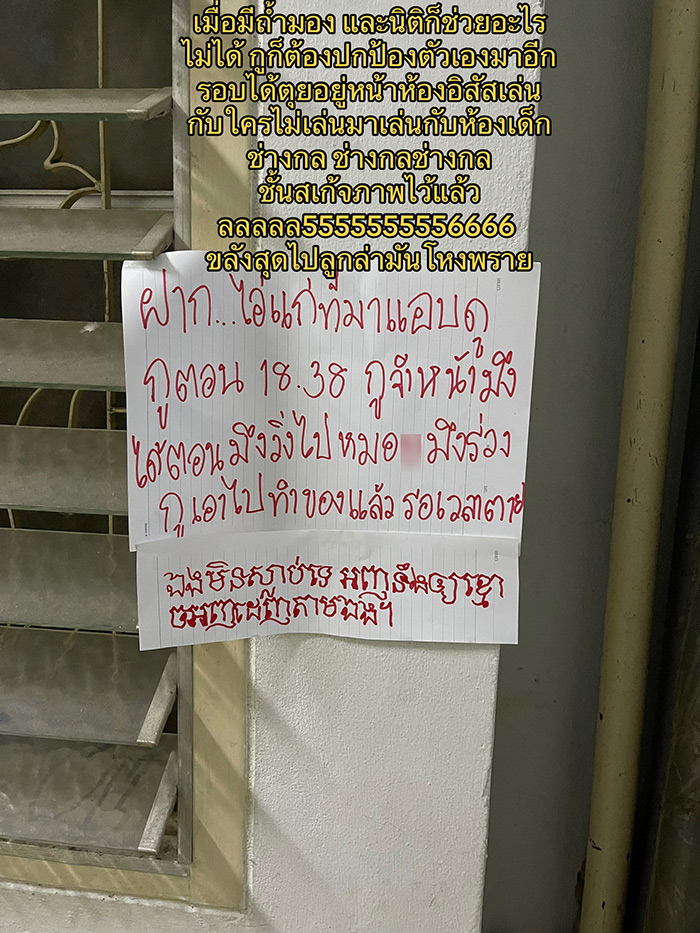 เมื่อมีถ้ำมอง และนิติก็ช่วยอะไร
ไม่ได้ กูก็ต้องปกป้องตัวเองมาอีก
รอบได้ตุยอยู่หน้าห้องอิสัสเล่น
กับใครไม่เล่นมาเล่นกับห้องเด็ก
ช่างกล ช่างกลช่างกล
ชั้นสเก้จภาพไว้แล้ว
ลลลลล55555555556666
ขลังสุดไปลูกล่ามันโหงพราย
ฝาก...ไอ่แก่ที่มาแอบดู
กูตอน 18.38 กูจำหน้ามึง
ได้ตอนมึงวิ่งไป หมอ มึงร่วง
กูเอาไปทำของแล้ว รอเวลาตาย
ឯងមិនស្លាប់ទេ អញនឹងឲ្យខ្មោ
ចអញដេញតាមឯង។